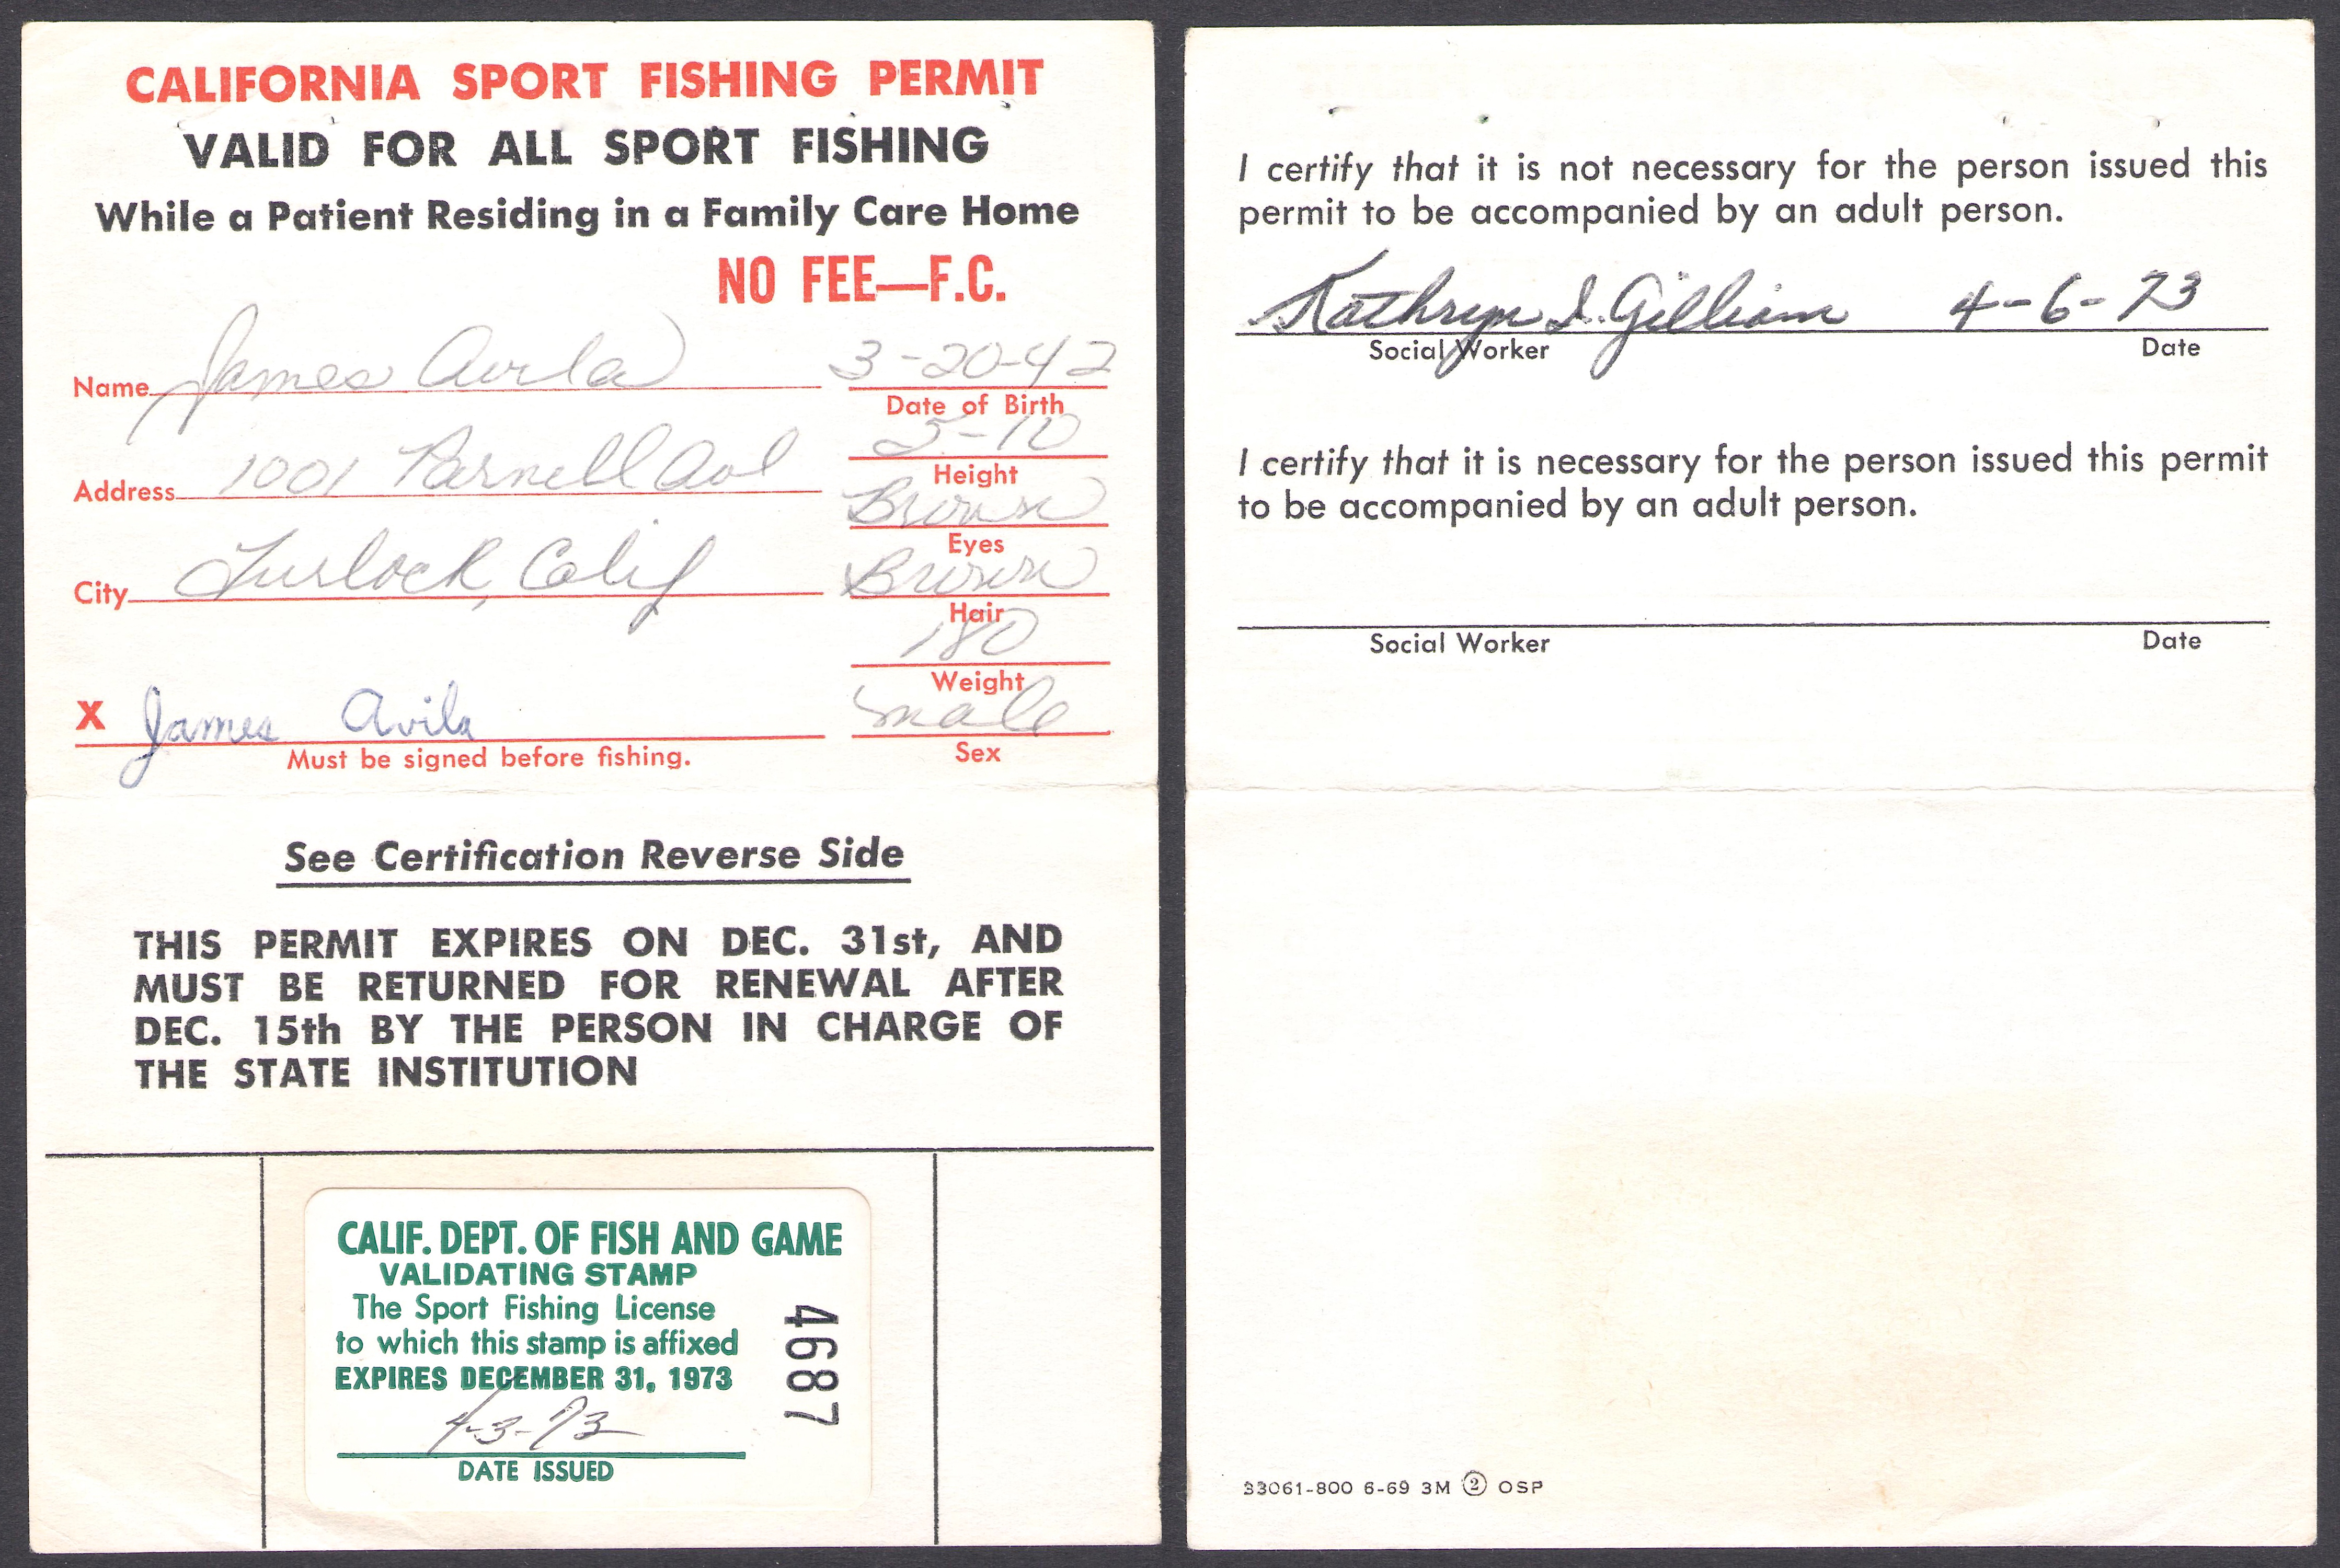 CALIFORNIA SPORT FISHING PERMIT
VALID FOR ALL SPORT FISHING
While a Patient Residing in a Family Care Home
NO FEE—F.C.
Name James Avila
3-20-42
Date of Birth
5-10
Height
Address 1001 Parnell Ave
Brown
Eyes
City Turlock, Calif
Brown
Hair
180
Weight
X James Avila
Must be signed before fishing.
male
Sex
See Certification Reverse Side
THIS PERMIT EXPIRES ON DEC. 31st, AND
MUST BE RETURNED FOR RENEWAL AFTER
DEC. 15th BY THE PERSON IN CHARGE OF
THE STATE INSTITUTION
CALIF. DEPT. OF FISH AND GAME
VALIDATING STAMP
The Sport Fishing License
to which this stamp is affixed
EXPIRES DECEMBER 31, 1973
4-3-73
DATE ISSUED
4687
I certify that it is not necessary for the person issued this
permit to be accompanied by an adult person.
Kathryn I. Gilliam 4-6-73
Social Worker Date
I certify that it is necessary for the person issued this permit
to be accompanied by an adult person.
Social Worker Date
33061-800 6-69 3M ② OSP